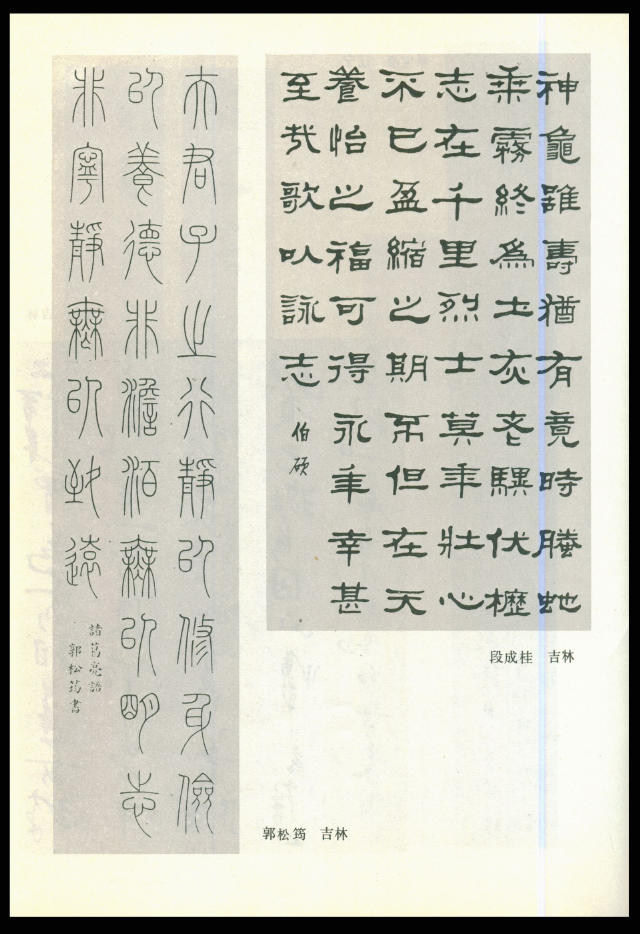 神龜雖壽猶有竟時螣虵
乘霧終爲土灰老驥伏櫪
志在千里烈士莫年壯心
不已盈縮之期不但在天
養怡之福可得永年幸甚
至哉歌以詠志
伯碩
段成桂 吉林
夫君子之行靜以修身儉
以養德非澹泊無以明志
非寧靜無以致遠
諸葛亮語
郭松筠書
郭松筠 吉林